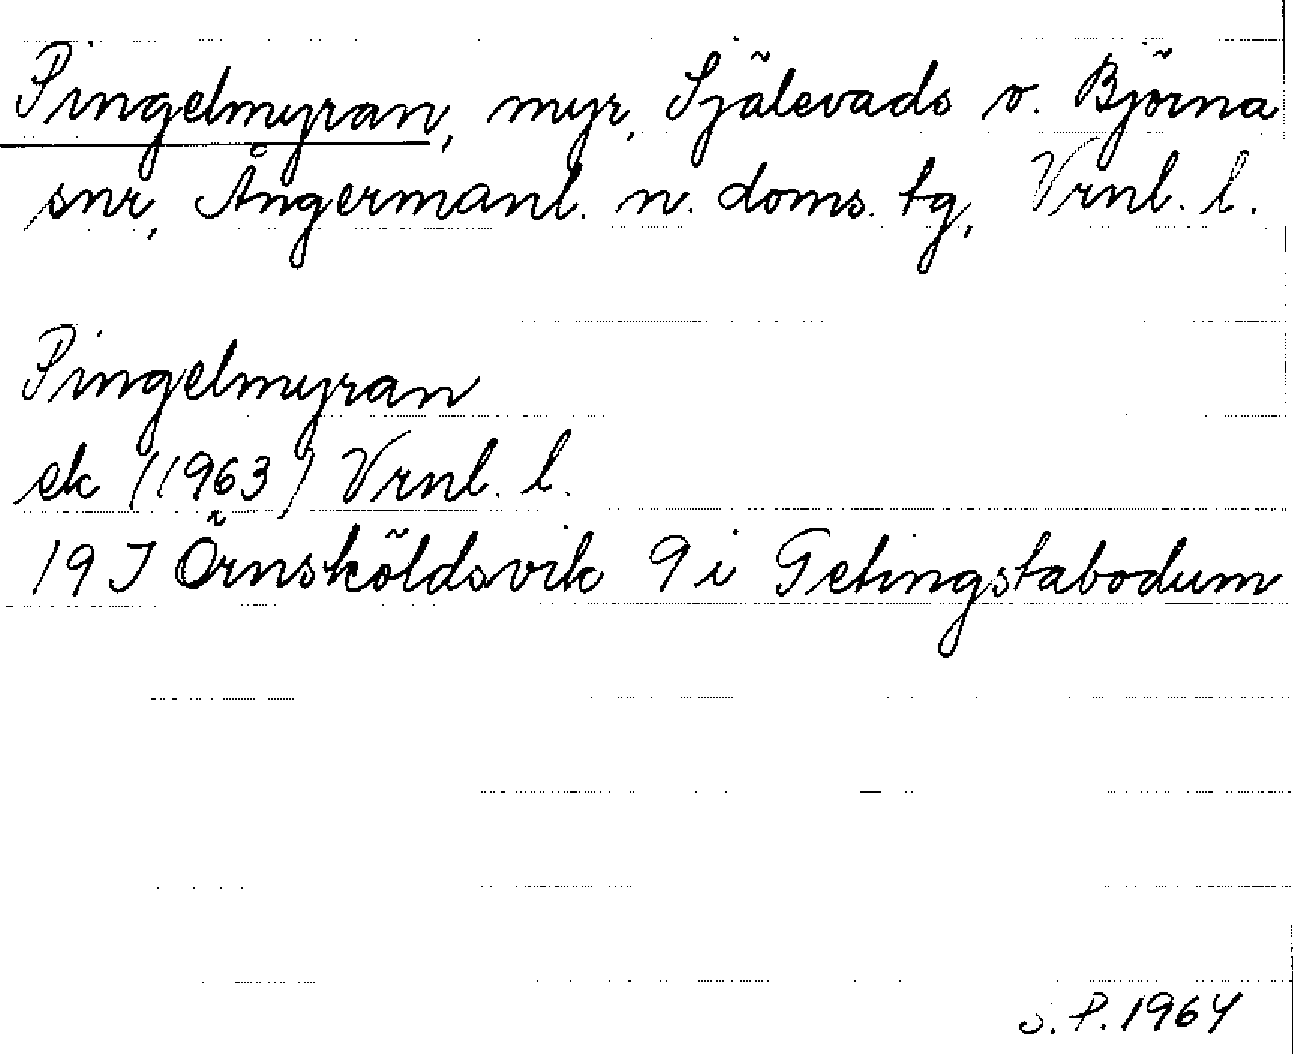 Pingelmyran, myr, Själevads o. Björna
snr, Ångermanl. n. doms. tg, Vrnl. l.
Pingelmyran
ek (1963) Vrnl. l.
19 J Örnsköldsvik 9 i Getingstabodum
S.P. 1964